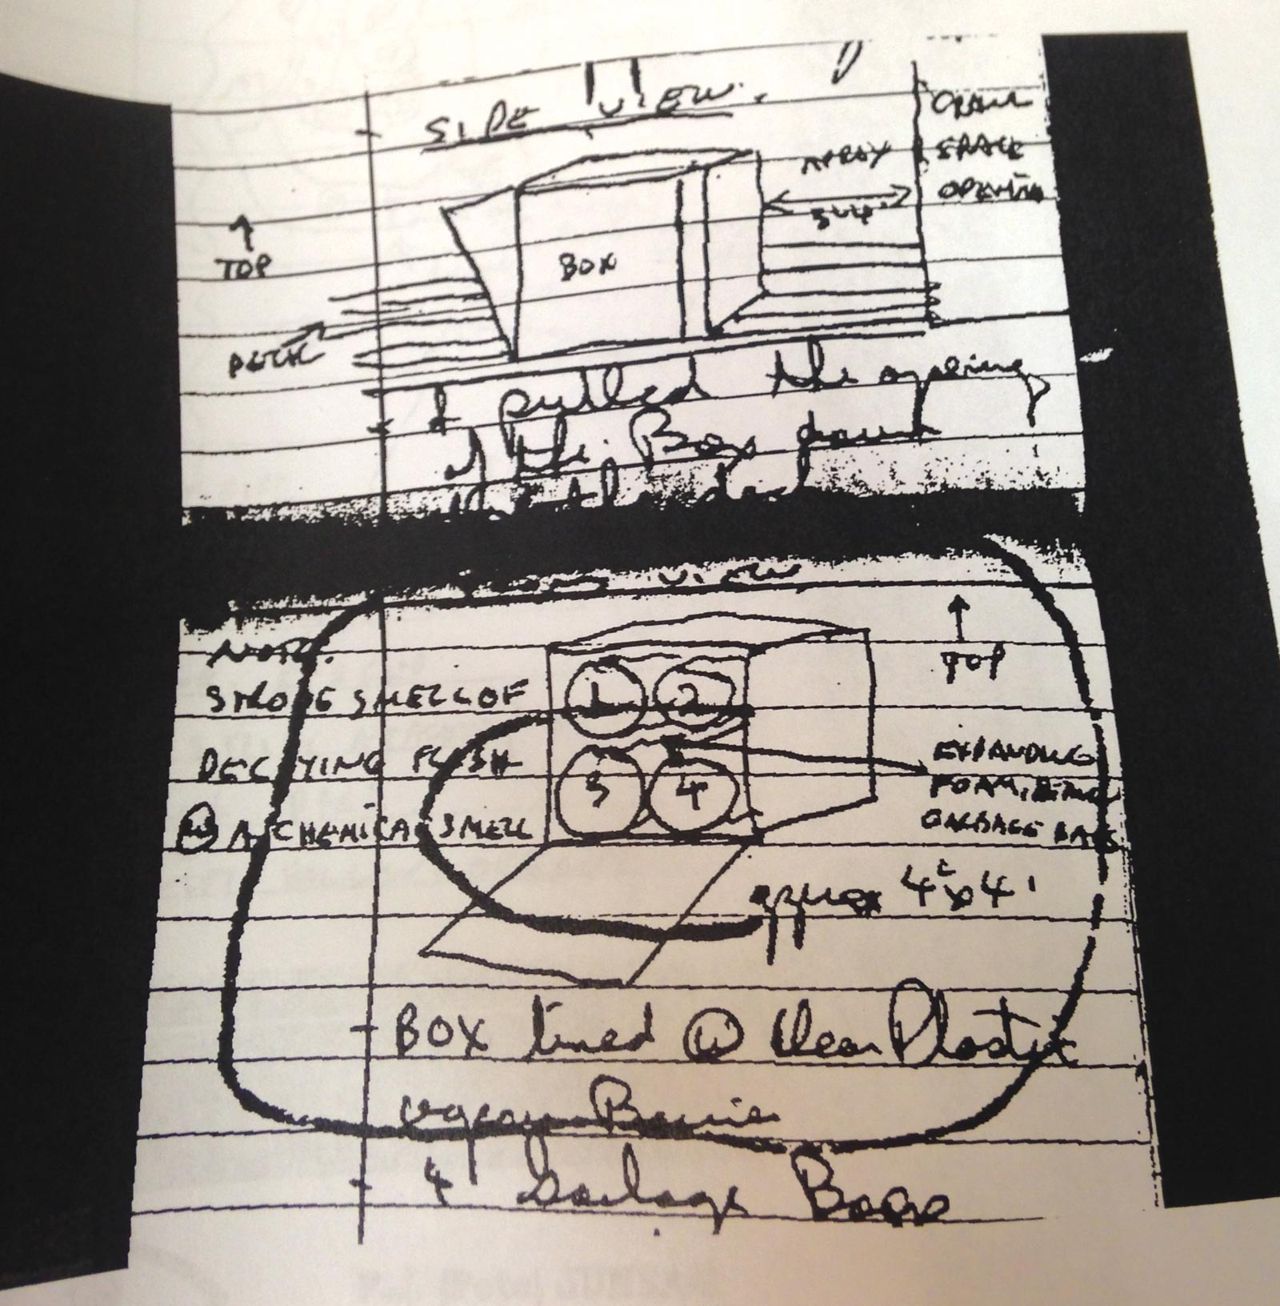 SIDE VIEW.
CRAWL
SPACE
OPENING
APROX
3-4'
TOP
BOX
DECK
- I pulled the opening
of the Box down
VIEW
TOP
NOTE:
STRONG SMELL OF
DECAYING FLESH
A CHEMICAL SMELL
1 2
3 4
EXPANDING
FOAM,
GARBAGE BAGS
approx 4' x 4'
- BOX lined clear Plastic
vapour
- 4 Garbage Bags